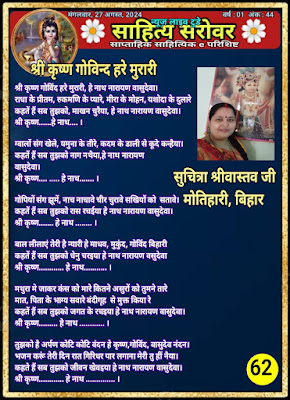 मंगलवार, 27 अगस्त, 2024
वर्ष : 01 अंक : 44
न्यूज लाइव टुडे
साहित्य सरोवर
साप्ताहिक साहित्यिक e परिशिष्ट
श्री कृष्ण गोविन्द हरे मुरारी
श्री कृष्ण गोविन्द हरे मुरारी, हे नाथ नारायण वासुदेवा।
राधा के प्रीतम, रुकमणि के प्यारे, मीरा के मोहन, यशोदा के दुलारे
कहतें हैं सब तुझको, माखन चुरैया, हे नाथ नारायण वासुदेवा।
श्री कृष्ण......हे नाथ.... ।
ग्वालों संग खेले, यमुना के तीरे, कदम के डाली से कूदे कन्हैया।
कहतें हैं सब तुझको नाग नथैया,हे नाथ नारायण
वासुदेवा।
श्री कृष्ण.... ..... हे नाथ....... ।
गोपियों संग झूमें, नाच नाचावे चीर चुरावे सखियों को सतावे।
कहतें हैं सब तुझको रास रचईया हे नाथ नारायण वासुदेवा।
श्री कृष्ण........ हे नाथ ........ ।
बाल लीलाएं तेरी है न्यारी हे माधव, मुकुंद, गोविंद बिहारी
कहतें हैं सब तुझको धेनु चरइया हे नाथ नारायण वसुदेवा
श्री कृष्ण............ हे नाथ........... ।
मथुरा मे जाकर कंस को मारे कितने असुरों को तुमने तारे
मात, पिता के भाग्य सवारे बंदीगृह से मुक्त किया रे
कहतें हैं सब तुझको जगत के रचइया हे नाथ नारायण वासुदेवा।
श्री कृष्ण.......... हे नाथ ............ ।
तुझको है अर्पण कोटि कोटि वंदन हे कृष्ण,गोविंद, वासुदेव नंदन।
भजन करूं तेरी दिन रात गिरिधर पार लगाना मेरी तु हीं नैया।
कहतें हैं सब तुझको जीवन खेवइया हे नाथ नारायण वासुदेवा।
श्री कृष्ण............ हे नाथ ............. ।
सुचित्रा श्रीवास्तव जी
मोतिहारी, बिहार
62